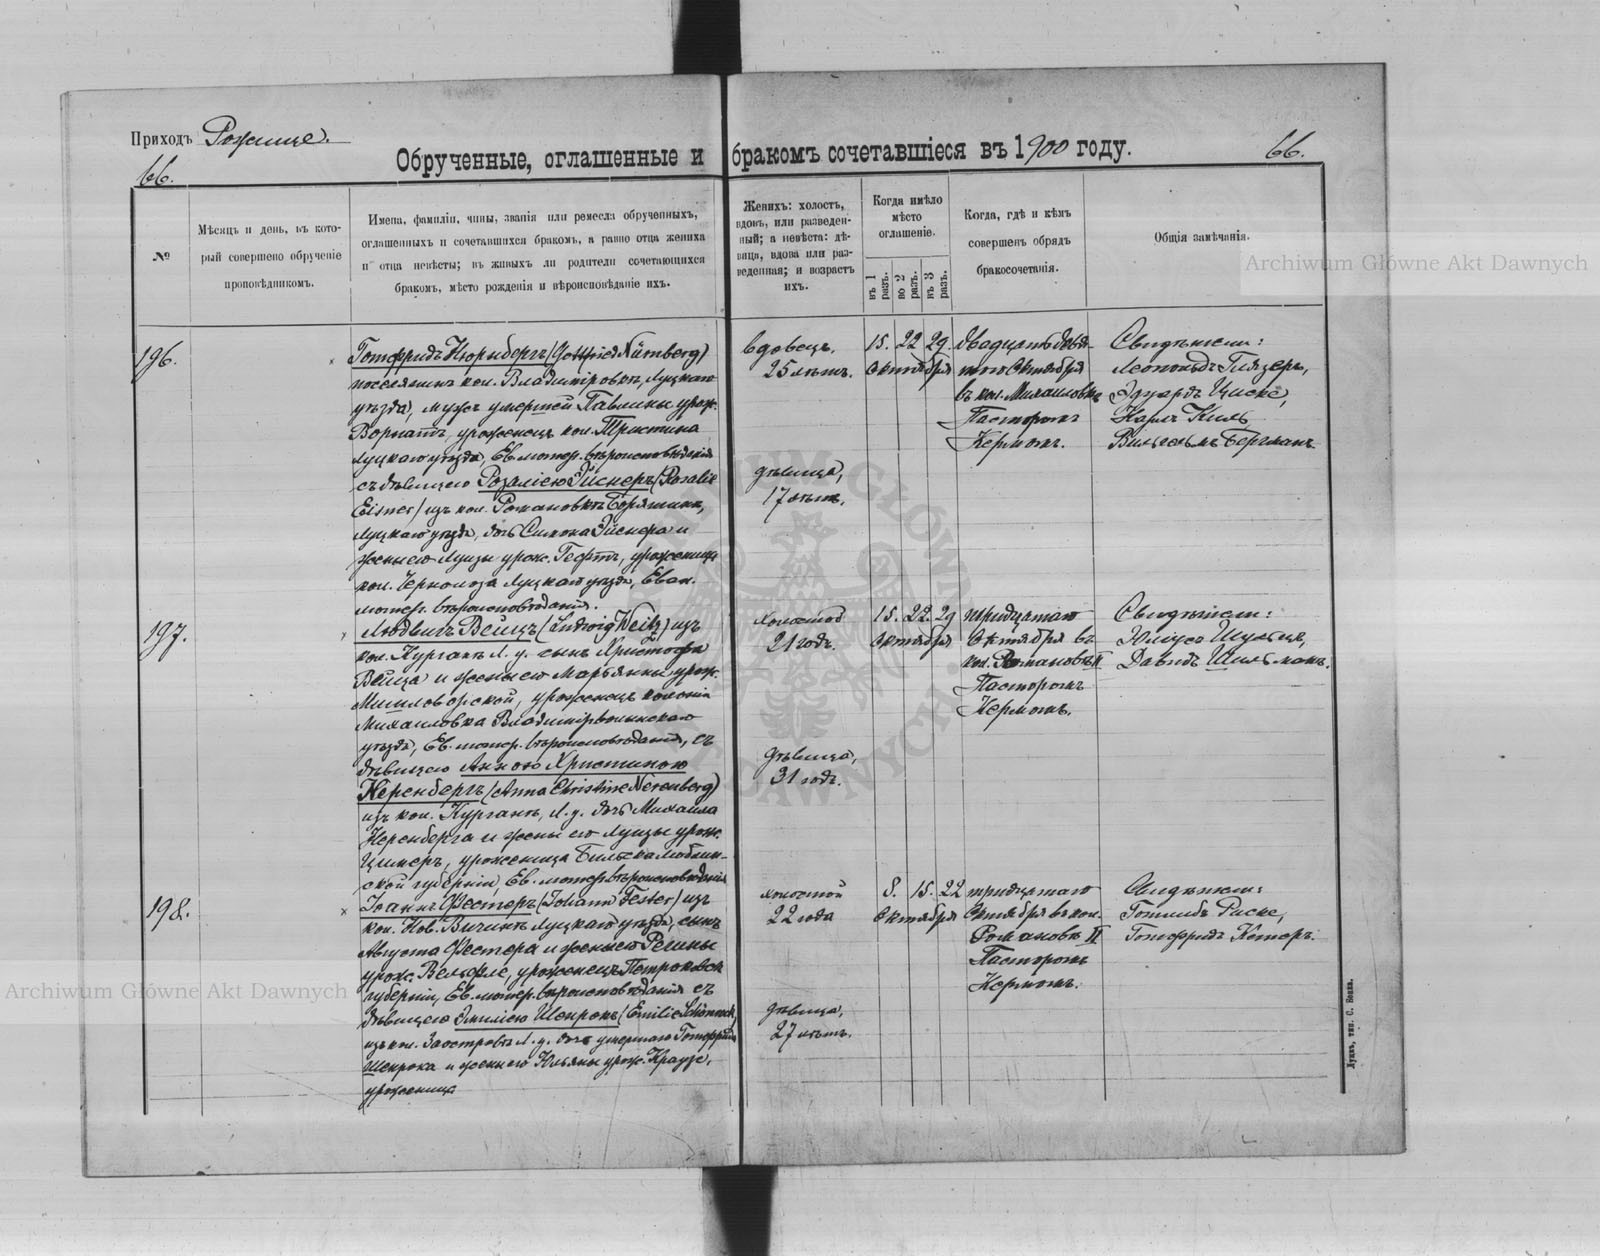 Приходъ Рожище.
Обрученные, оглашенные и бракомъ сочетавшіеся въ 1900 году.
66.
66.
№
Мѣсяцъ и день, въ кото-
рый совершено обрученіе
проповѣдникомъ.
Имена, фамиліи, чины, званія или ремесла обрученныхъ,
оглашенныхъ и сочетавшихся бракомъ, а равно отца жениха
и отца невѣсты; въ живыхъ ли родители сочетающихся
бракомъ, мѣсто рожденія и вѣроисповѣданіе ихъ.
Женихъ: холостъ,
вдовъ, или разведен-
ный; а невѣста: дѣ-
вица, вдова или раз-
веденная; и возрастъ
ихъ.
Когда имѣло
мѣсто
оглашеніе.
въ 1 разъ.
во 2 разъ.
въ 3 разъ.
Когда, гдѣ и кѣмъ
совершенъ обрядъ
бракосочетанія.
Общія замѣчанія.
Archiwum Główne Akt Dawnych
196.
Готфридъ Нюрнбергъ (Gottfried Nürnberg)
поселянинъ кол. Владимировкъ, Луцкаго
уѣзда, мужъ умершей Павлины урож.
Ворматъ, уроженецъ кол. Тристина
Луцкаго уѣзда, Ев. лютер. вѣроисповѣданія
съ дѣвицею Розаліею Эйснеръ (Rosalie
Eisner) изъ кол. Романовкъ Борятинъ,
Луцкаго уѣзда, дочь Симона Эйснера и
жены его Луизы урож. Гефтъ, уроженица
кол. Чернолоза Луцкаго уѣзда, Еван.
лютер. вѣроисповѣданія.
вдовецъ.
25 лѣтъ.
дѣвица,
17 лѣтъ.
15. 22 29.
Октября
двадцать девя-
того Октября
въ кол. Михаиловкѣ
Пасторомъ
Кермомъ.
Свидѣтели:
Леопольдъ Глязеръ,
Эдуардъ Циске,
Карлъ Киль,
Вильгельмъ Бергманъ
197.
Людвигъ Вейцъ (Ludwig Weitz) изъ
кол. Курганъ Л. у. сынъ Христофа
Вейца и жены его Марьянны урож.
Мишловорской, уроженецъ колоніи
Михаиловка Владимірволынскаго
уѣзда, Ев. лютер. вѣроисповѣданія, съ
дѣвицею Анною Христиною
Неренбергъ (Anna Christine Nerenberg)
изъ кол. Курганъ, Л. у. дочь Михаила
Неренберга и жены его Луизы урож.
Цимеръ, уроженица Бильска Люблин-
ской губерніи, Ев. лютер. вѣроисповѣданія
холостой
21 годъ.
дѣвица,
31 годъ.
15. 22. 29
Октября
тридцатаго
Октября въ
кол. Романовкѣ II
Пасторомъ
Кермомъ.
Свидѣтели:
Юліусъ Шульцъ,
Давидъ Шильманъ.
198.
Іоаннъ Фестеръ (Johann Fester) изъ
кол. Нов. Вичинъ Луцкаго уѣзда, сынъ
Августа Фестера и жены его Регины
урож. Вельфле, уроженецъ Петроковск
губерніи, Ев. лютер. вѣроисповѣданія съ
дѣвицею Эмиліею Шенрокъ (Emilie Schönrock)
изъ кол. Заостровъ Л. у. дочь умершаго Готфрида
Шенрока и жены его Юльяны урож. Краузе,
уроженица
холостой
22 года
дѣвица,
27 лѣтъ.
8. 15. 22
Октября
тридцатаго
Октября въ кол.
Романовкѣ II
Пасторомъ
Кермомъ.
Свидѣтели:
Готлибъ Риске,
Готфридъ Кетеръ.
Archiwum Główne Akt Dawnych
Луцкъ, тип. С. Бонка.